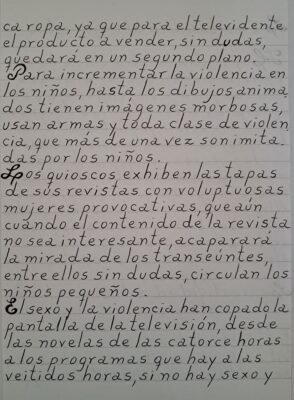 ca ropa, ya que para el televidente
el producto a vender, sin dudas,
quedará en un segundo plano.
Para incrementar la violencia en
los niños, hasta los dibujos anima
dos tienen imágenes morbosas,
usan armas y toda clase de violen
cia, que más de una vez son imita
das por los niños.
Los quioscos exhiben las tapas
de sus revistas con voluptuosas
mujeres provocativas, que aún
cuando el contenido de la revista
no sea interesante, acaparará
la mirada de los transeúntes,
entre ellos sin dudas, circulan los
niños pequeños.
El sexo y la violencia han copado la
pantalla de la televisión, desde
las novelas de las catorce horas
a los programas que hay a las
veitidos horas, si no hay sexo y